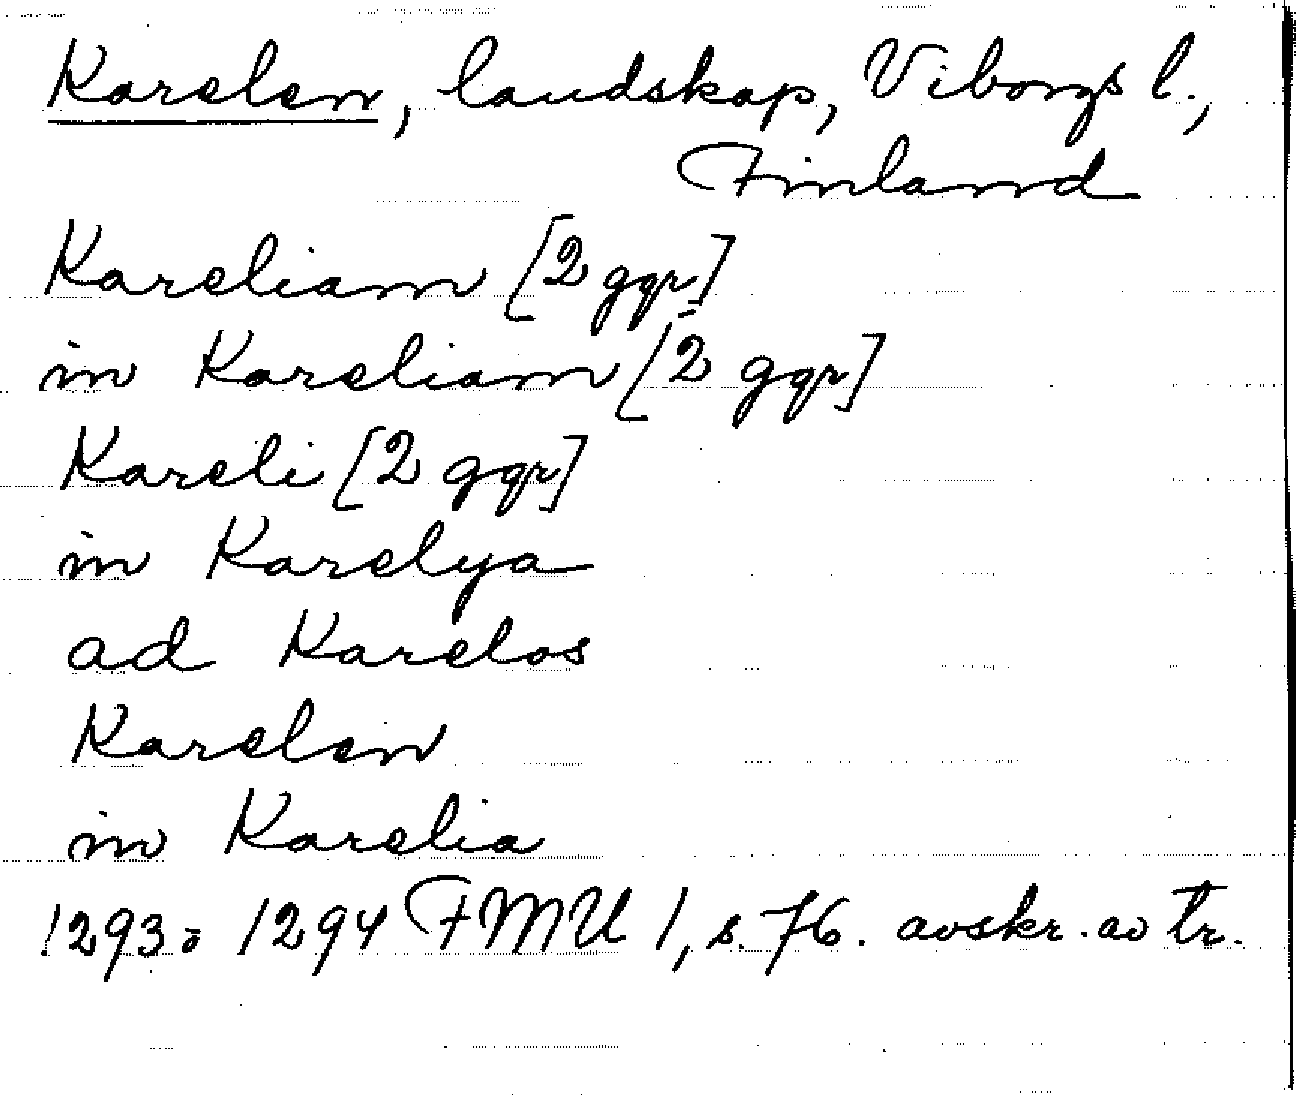 Karelen, landskap, Viborgs l.,
Finland
Kareliam [2 ggr]
in Kareliam [2 ggr]
Kareli [2 ggr]
in Karelya
ad Karelos
Karelen
in Karelia
1293-1294 FMU 1, s. 76. avskr. av tr.